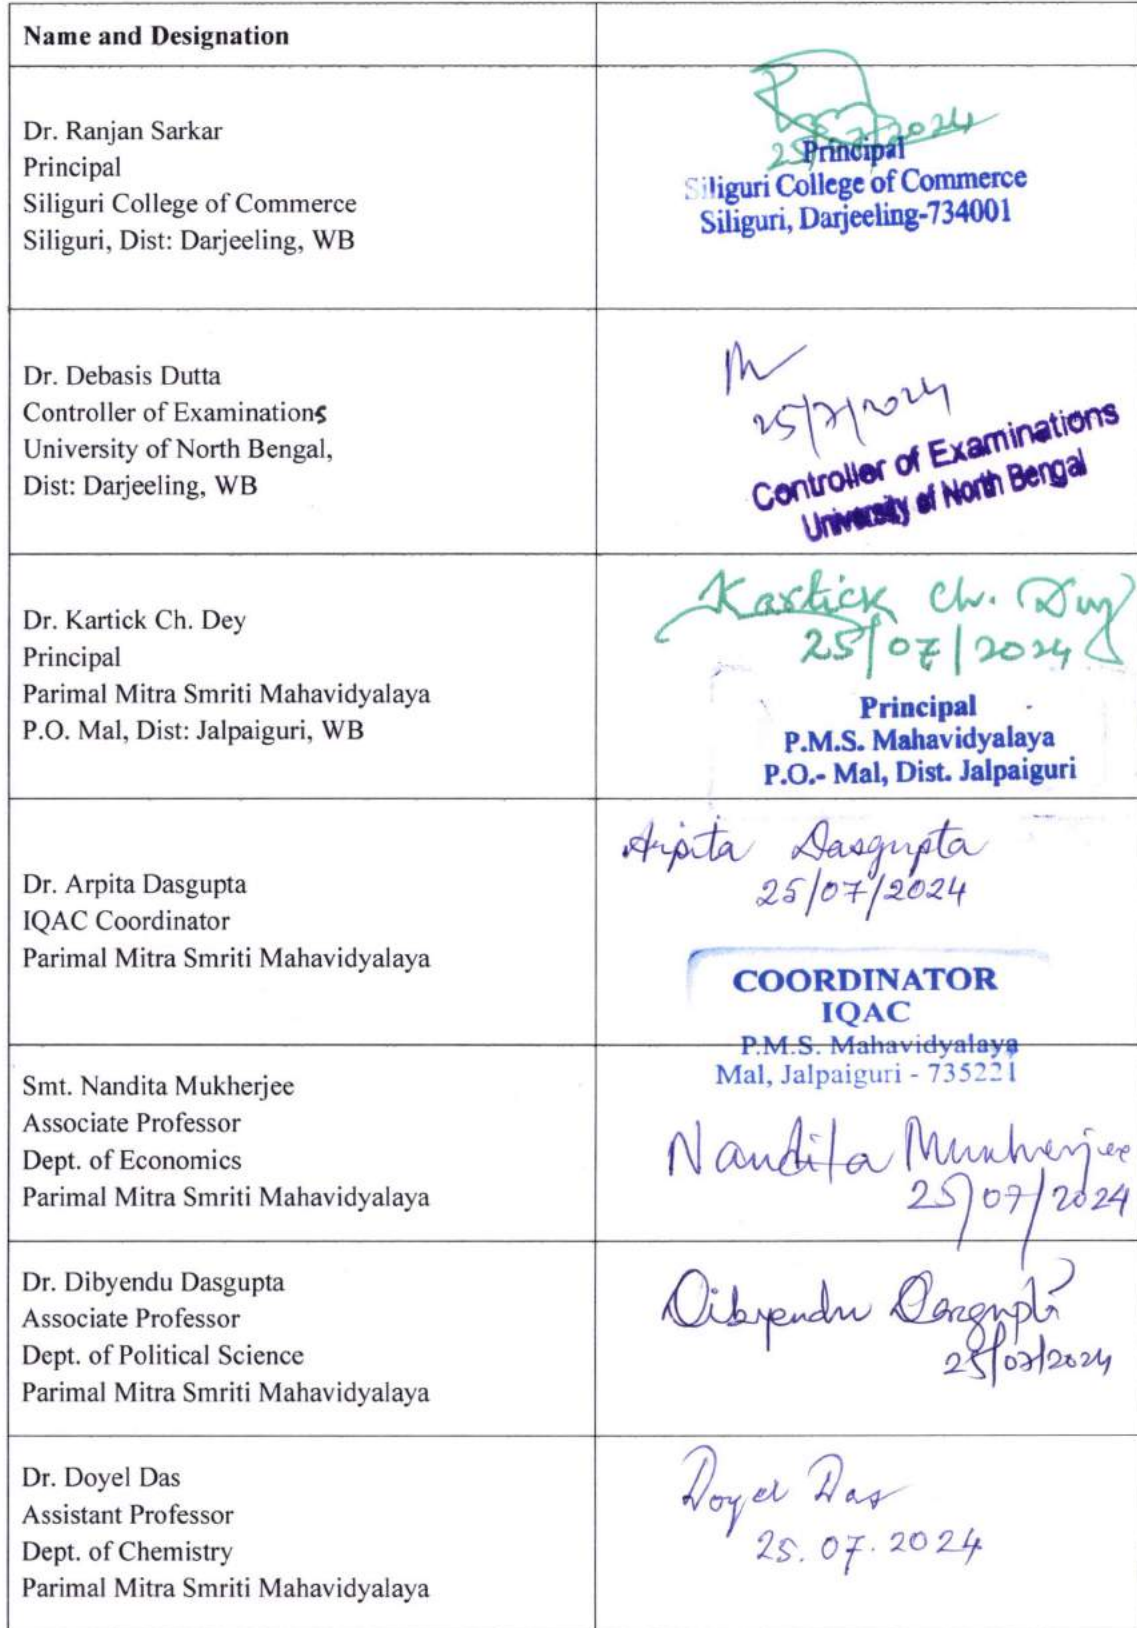 Name and Designation
Dr. Ranjan Sarkar
Principal
Siliguri College of Commerce
Siliguri, Dist: Darjeeling, WB
25/7/2024
Principal
Siliguri College of Commerce
Siliguri, Darjeeling-734001
Dr. Debasis Dutta
Controller of Examinations
University of North Bengal,
Dist: Darjeeling, WB
25/7/2024
Controller of Examinations
University of North Bengal
Dr. Kartick Ch. Dey
Principal
Parimal Mitra Smriti Mahavidyalaya
P.O. Mal, Dist: Jalpaiguri, WB
Kartick Ch. Dey
25/07/2024
Principal
P.M.S. Mahavidyalaya
P.O.- Mal, Dist. Jalpaiguri
Dr. Arpita Dasgupta
IQAC Coordinator
Parimal Mitra Smriti Mahavidyalaya
Arpita Dasgupta
25/07/2024
COORDINATOR
IQAC
P.M.S. Mahavidyalaya
Mal, Jalpaiguri - 735221
Smt. Nandita Mukherjee
Associate Professor
Dept. of Economics
Parimal Mitra Smriti Mahavidyalaya
Nandita Mukherjee
25/07/2024
Dr. Dibyendu Dasgupta
Associate Professor
Dept. of Political Science
Parimal Mitra Smriti Mahavidyalaya
Dibyendu Dasgupta
25/07/2024
Dr. Doyel Das
Assistant Professor
Dept. of Chemistry
Parimal Mitra Smriti Mahavidyalaya
Doyel Das
25.07.2024